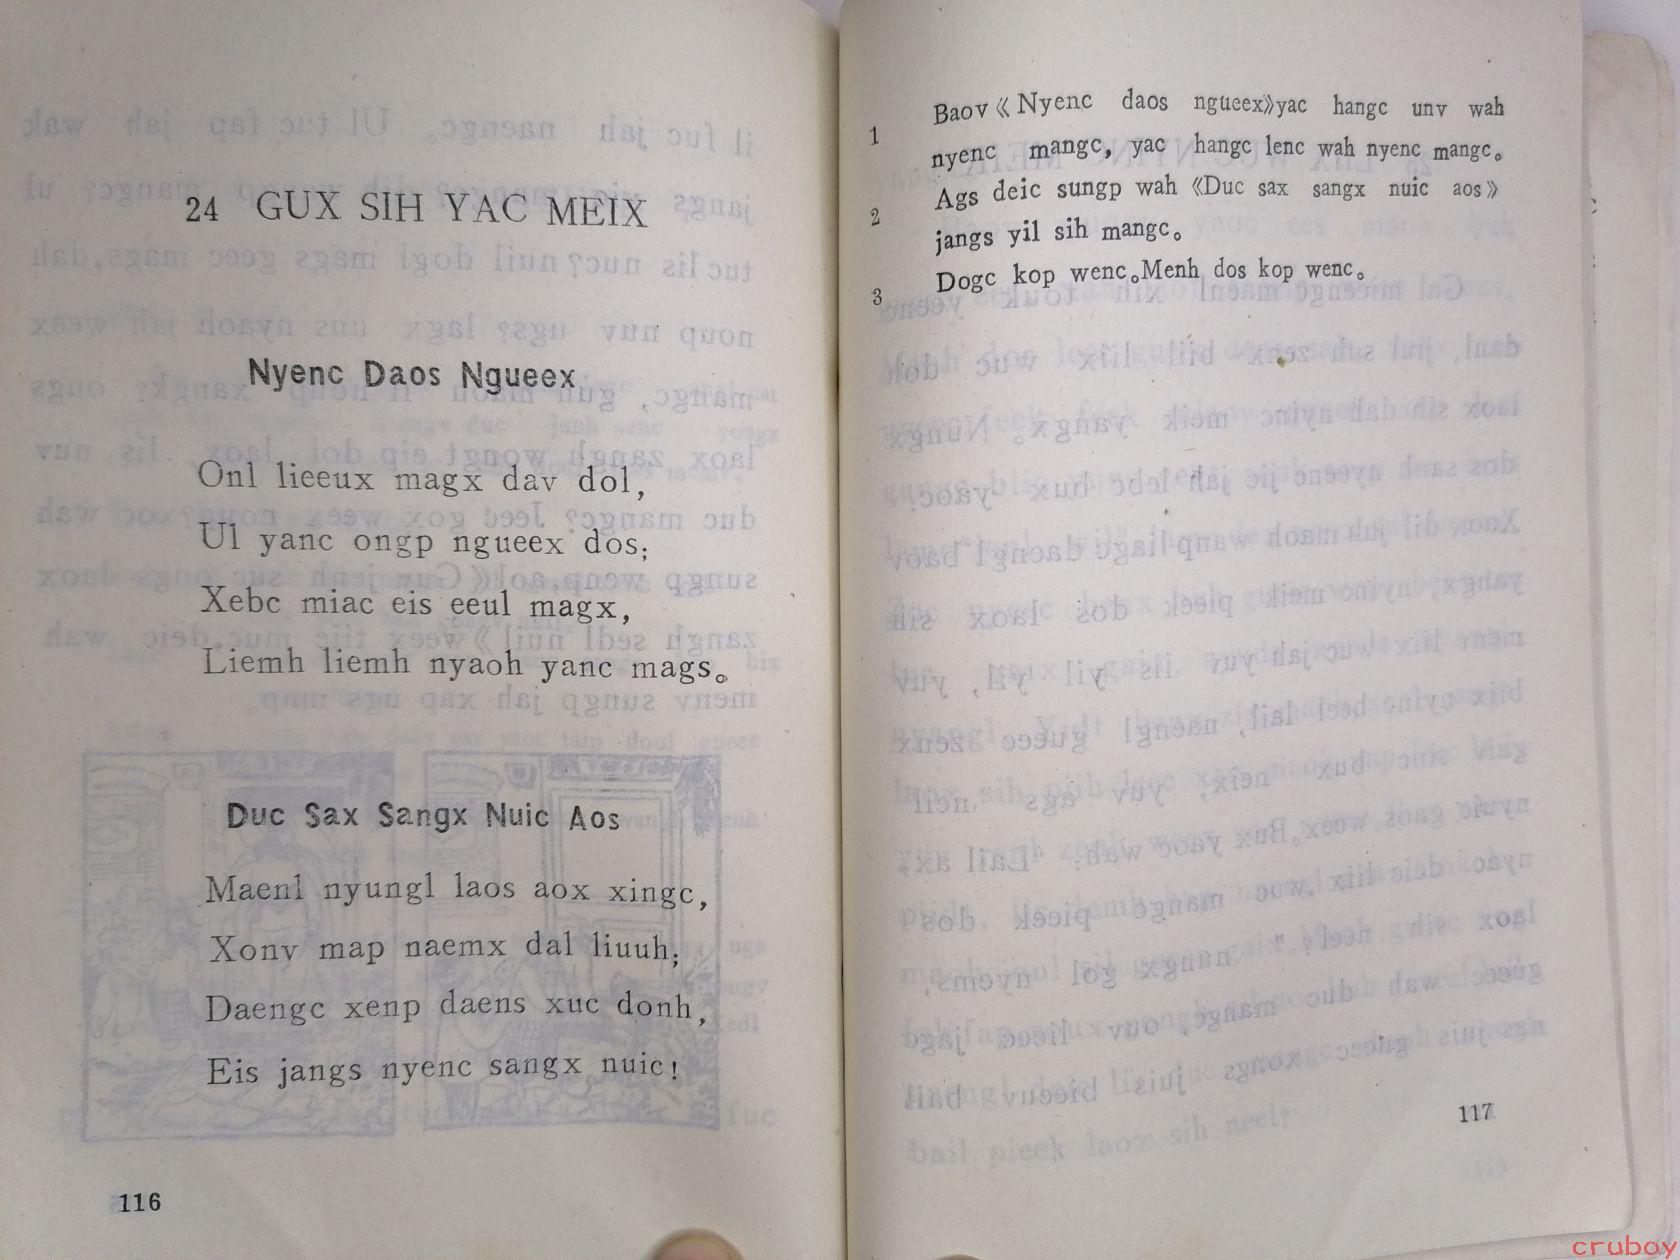 24 GUX SIH YAC MEIX
Nyenc Daos Ngueex
Onl lieeux magx dav dol,
Ul yanc ongp ngueex dos;
Xebc miac eis eeul magx,
Liemh liemh nyaoh yanc mags。
Duc Sax Sangx Nuic Aos
Maenl nyungl laos aox xingc,
Xonv map naemx dal liuuh;
Daengc xenp daens xuc donh,
Eis jangs nyenc sangx nuic!
116
1 Baov《Nyenc daos ngueex》yac hangc unv wah
nyenc mangc, yac hangc lenc wah nyenc mangc。
2 Ags deic sungp wah《Duc sax sangx nuic aos》
jangs yil sih mangc。
3 Dogc kop wenc。Menh dos kop wenc。
117
cruboy